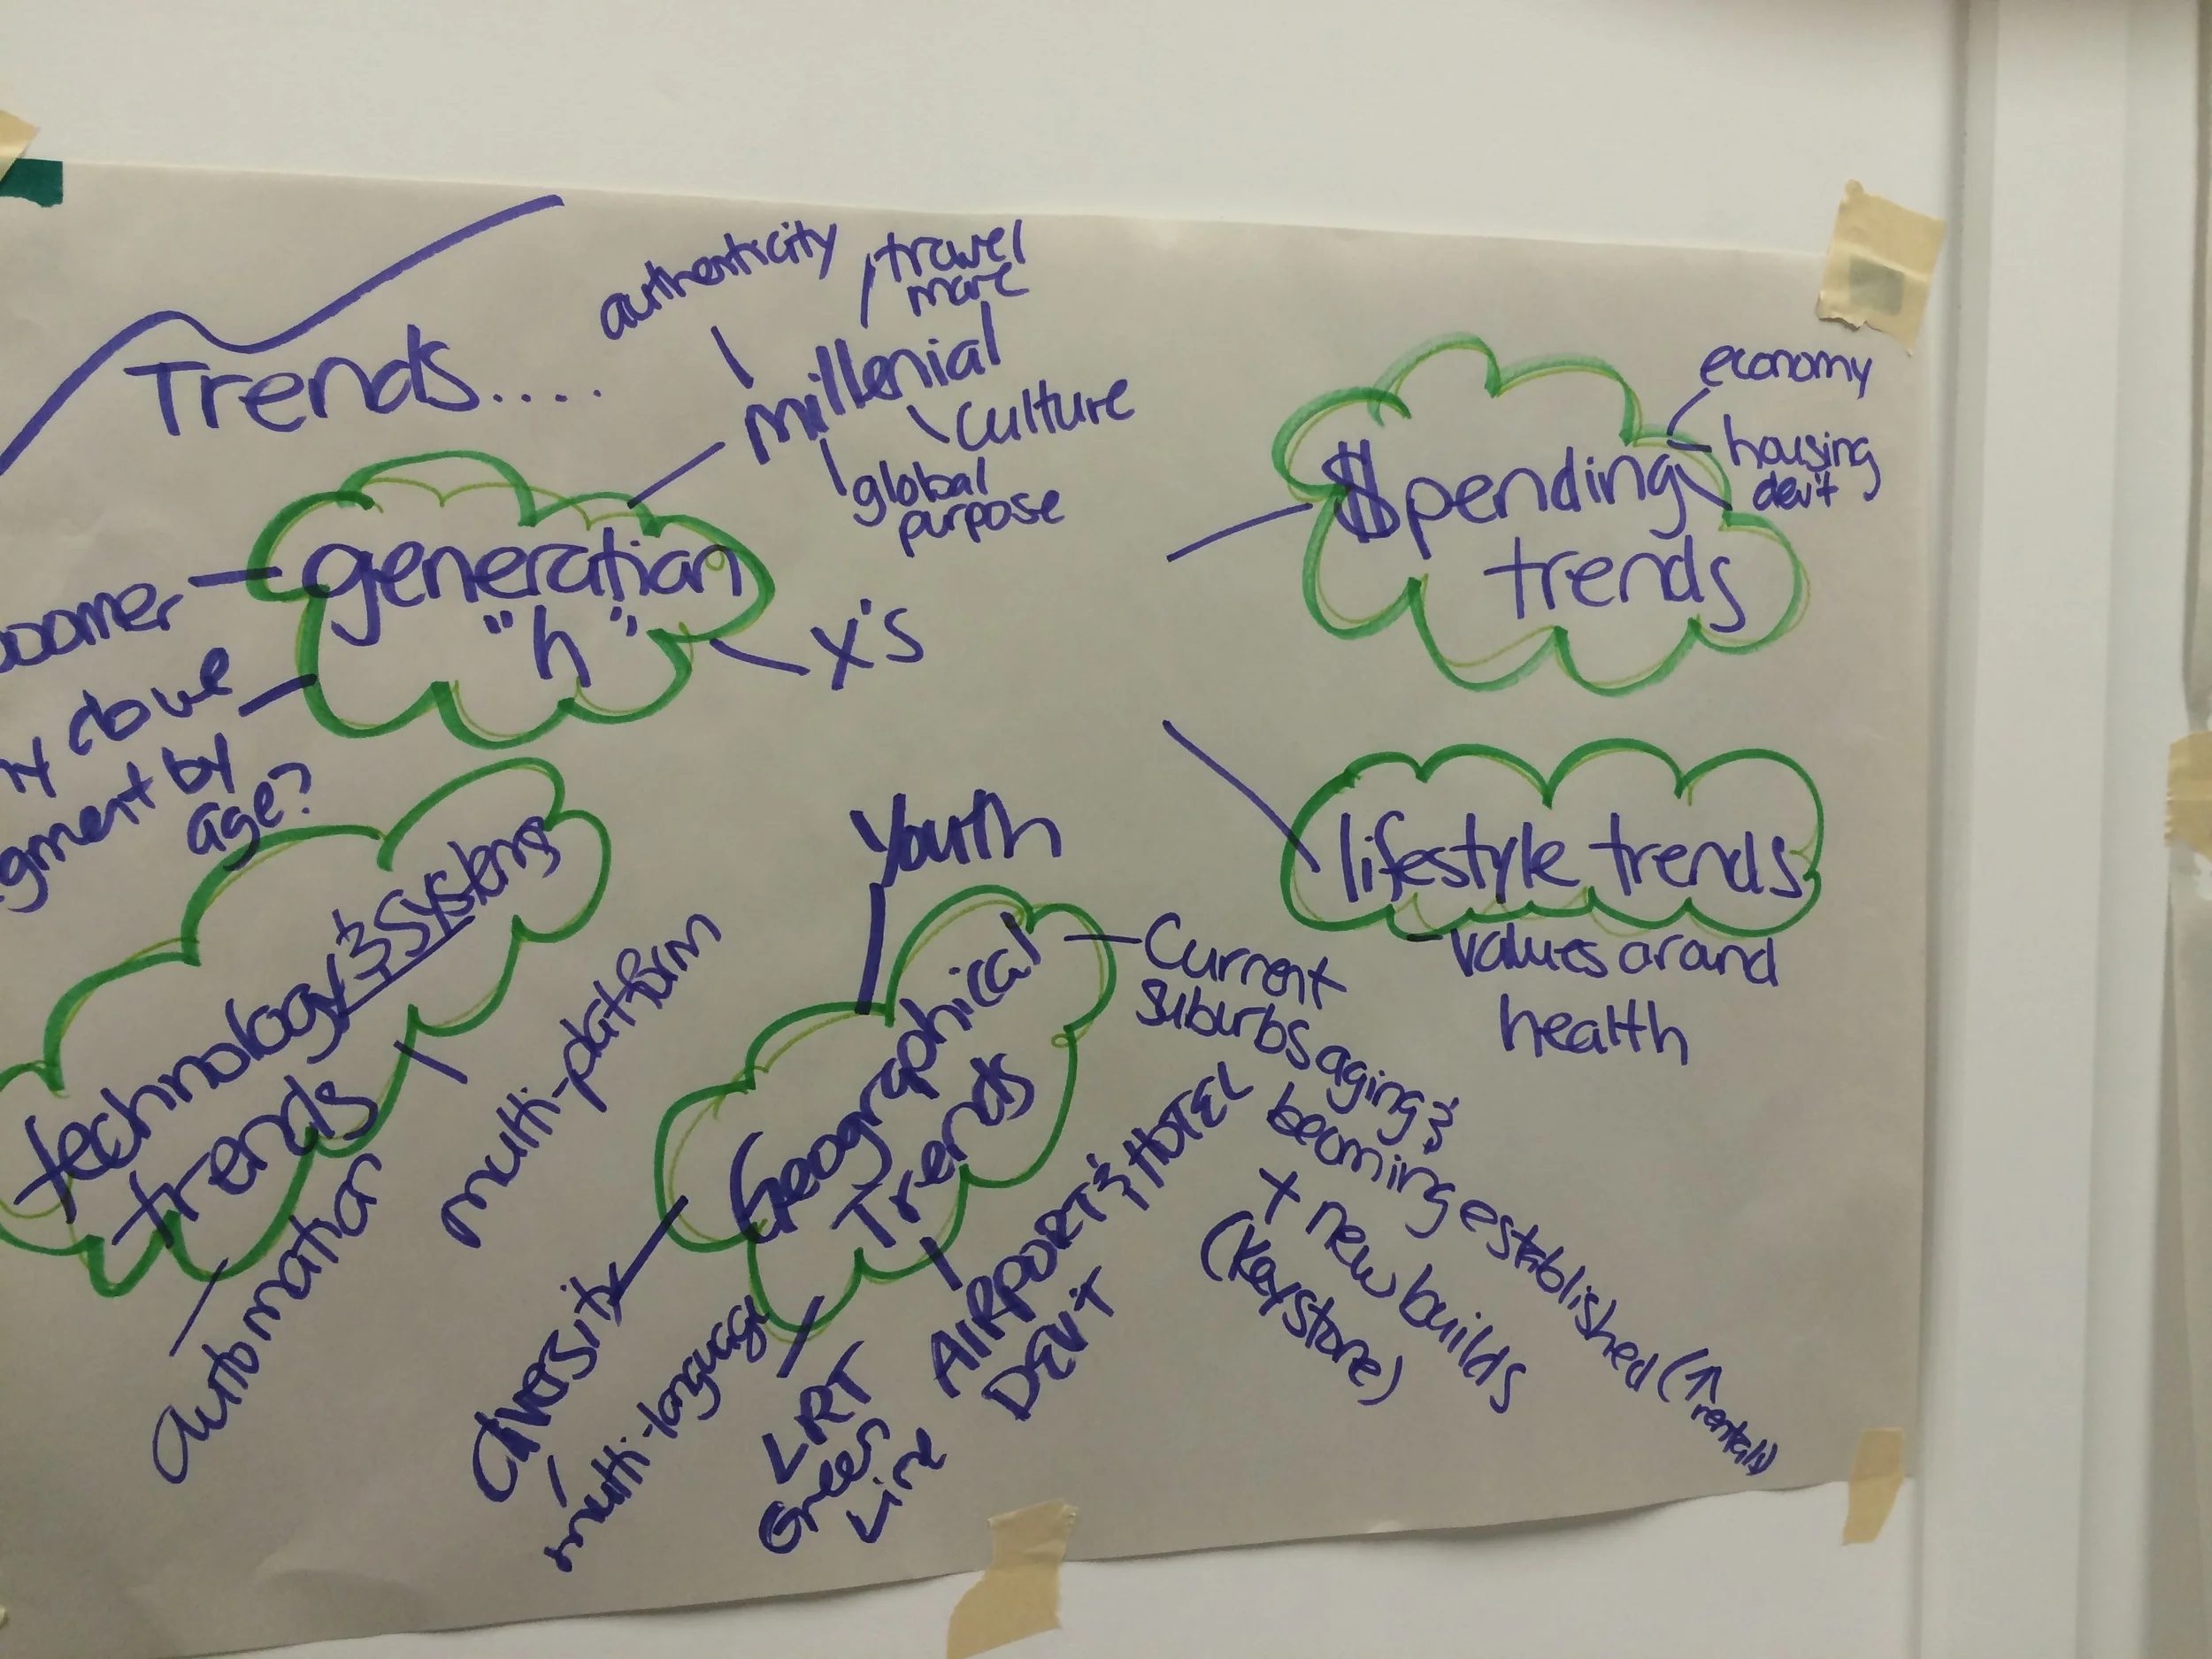 Trends.....
authenticity
travel
more
millenial
culture
global
purpose
generation
"h"
X's
by
age?
technology & systems
trends
multi-platform
automation
$pending
trends
economy
housing
dev't
lifestyle trends
values around
health
Youth
Geographical
Trends
Current
suburbs aging &
becoming established (↑ rentals)
+ new builds
(Keystone)
AIRPORT & HOTEL
DEV'T
LRT
Green
Line
diversity
multi-language